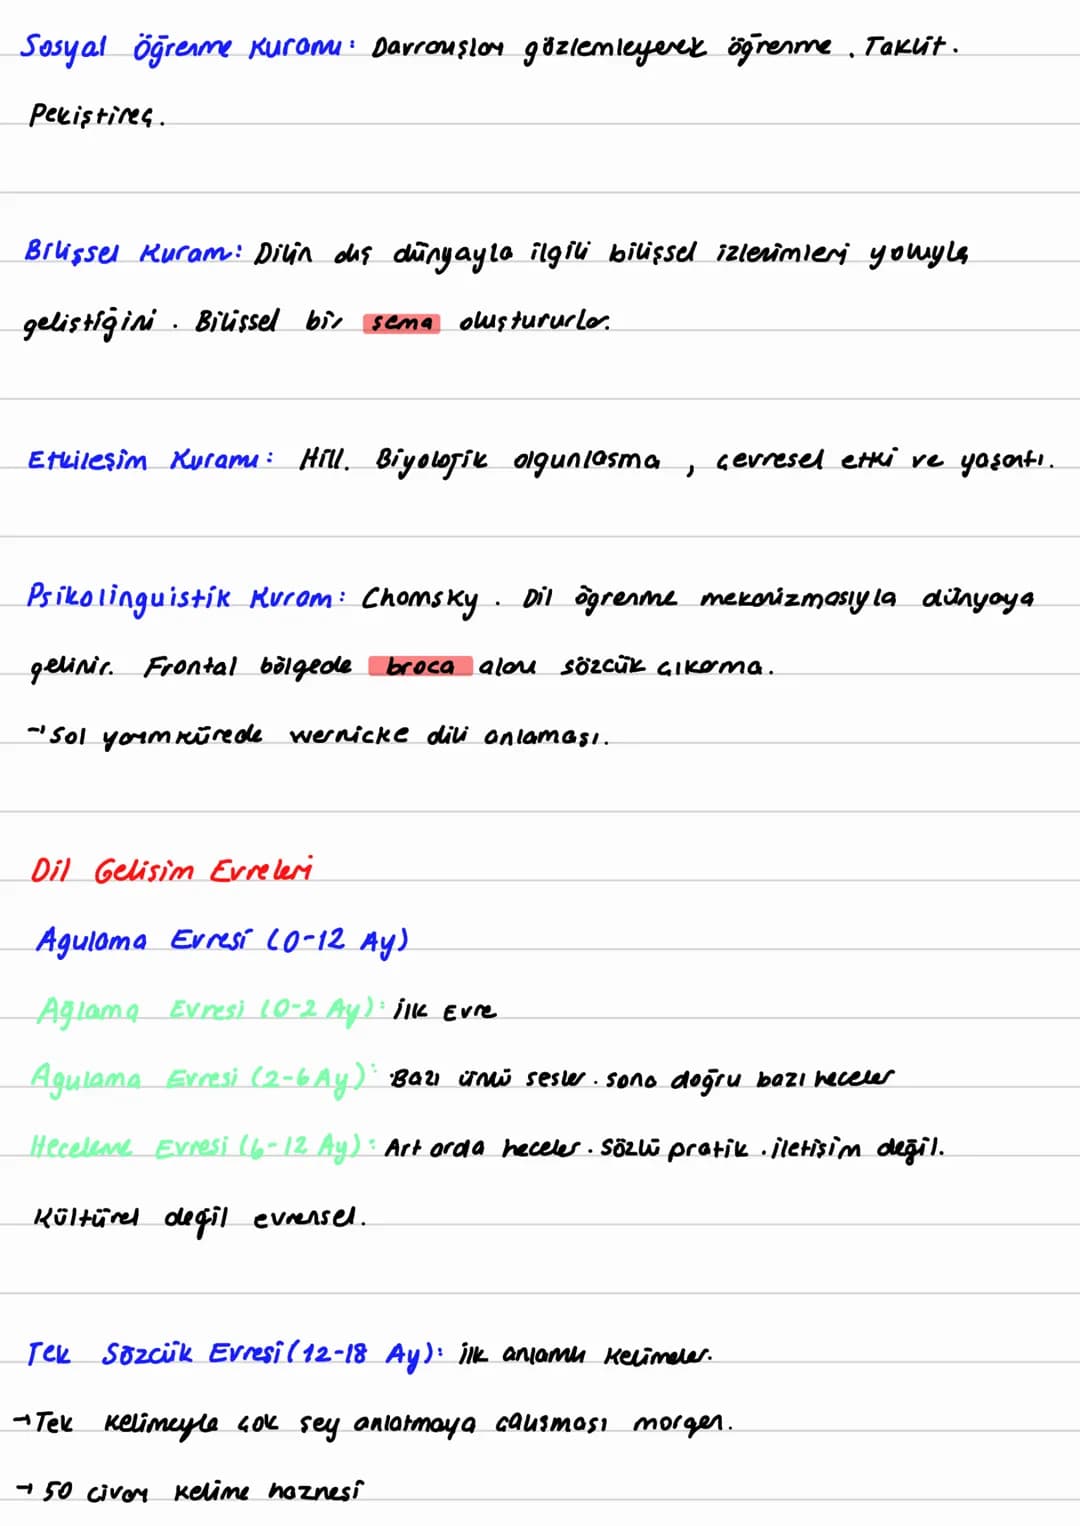 Sosyal Öğrenme Kuramı: Davranışları gözlemleyerek öğrenme. Taklit.
Pekiştireç.
Bilişsel Kuram: Dilin dış dünyayla ilgili bilişsel izlenimleri yoluyla
geliştiğini. Bilişsel bir şema oluştururlar.
Etkileşim Kuramı: Hill. Biyolojik olgunlaşma, çevresel etki ve yaşantı.
Psikolinguistik Kuram: Chomsky. Dil öğrenme mekanizmasıyla dünyaya
gelinir. Frontal bölgede broca alanı sözcük çıkarma.
→ Sol yarımkürede wernicke dili anlaması.
Dil Gelişim Evreleri
Agulama Evresi (0-12 Ay)
Ağlama Evresi (0-2 Ay): İlk Evre
Agulama Evresi (2-6 Ay): Bazı ünlü sesler. sona doğru bazı heceler
Heceleme Evresi (6-12 Ay): Art arda heceler. Sözlü pratik. iletişim değil.
Kültürel değil evrensel.
Tek Sözcük Evresi (12-18 Ay): ilk anlamlı kelimeler.
→ Tek kelimeyle çok şey anlatmaya çalışması morgen.
→ 50 civarı kelime haznesi